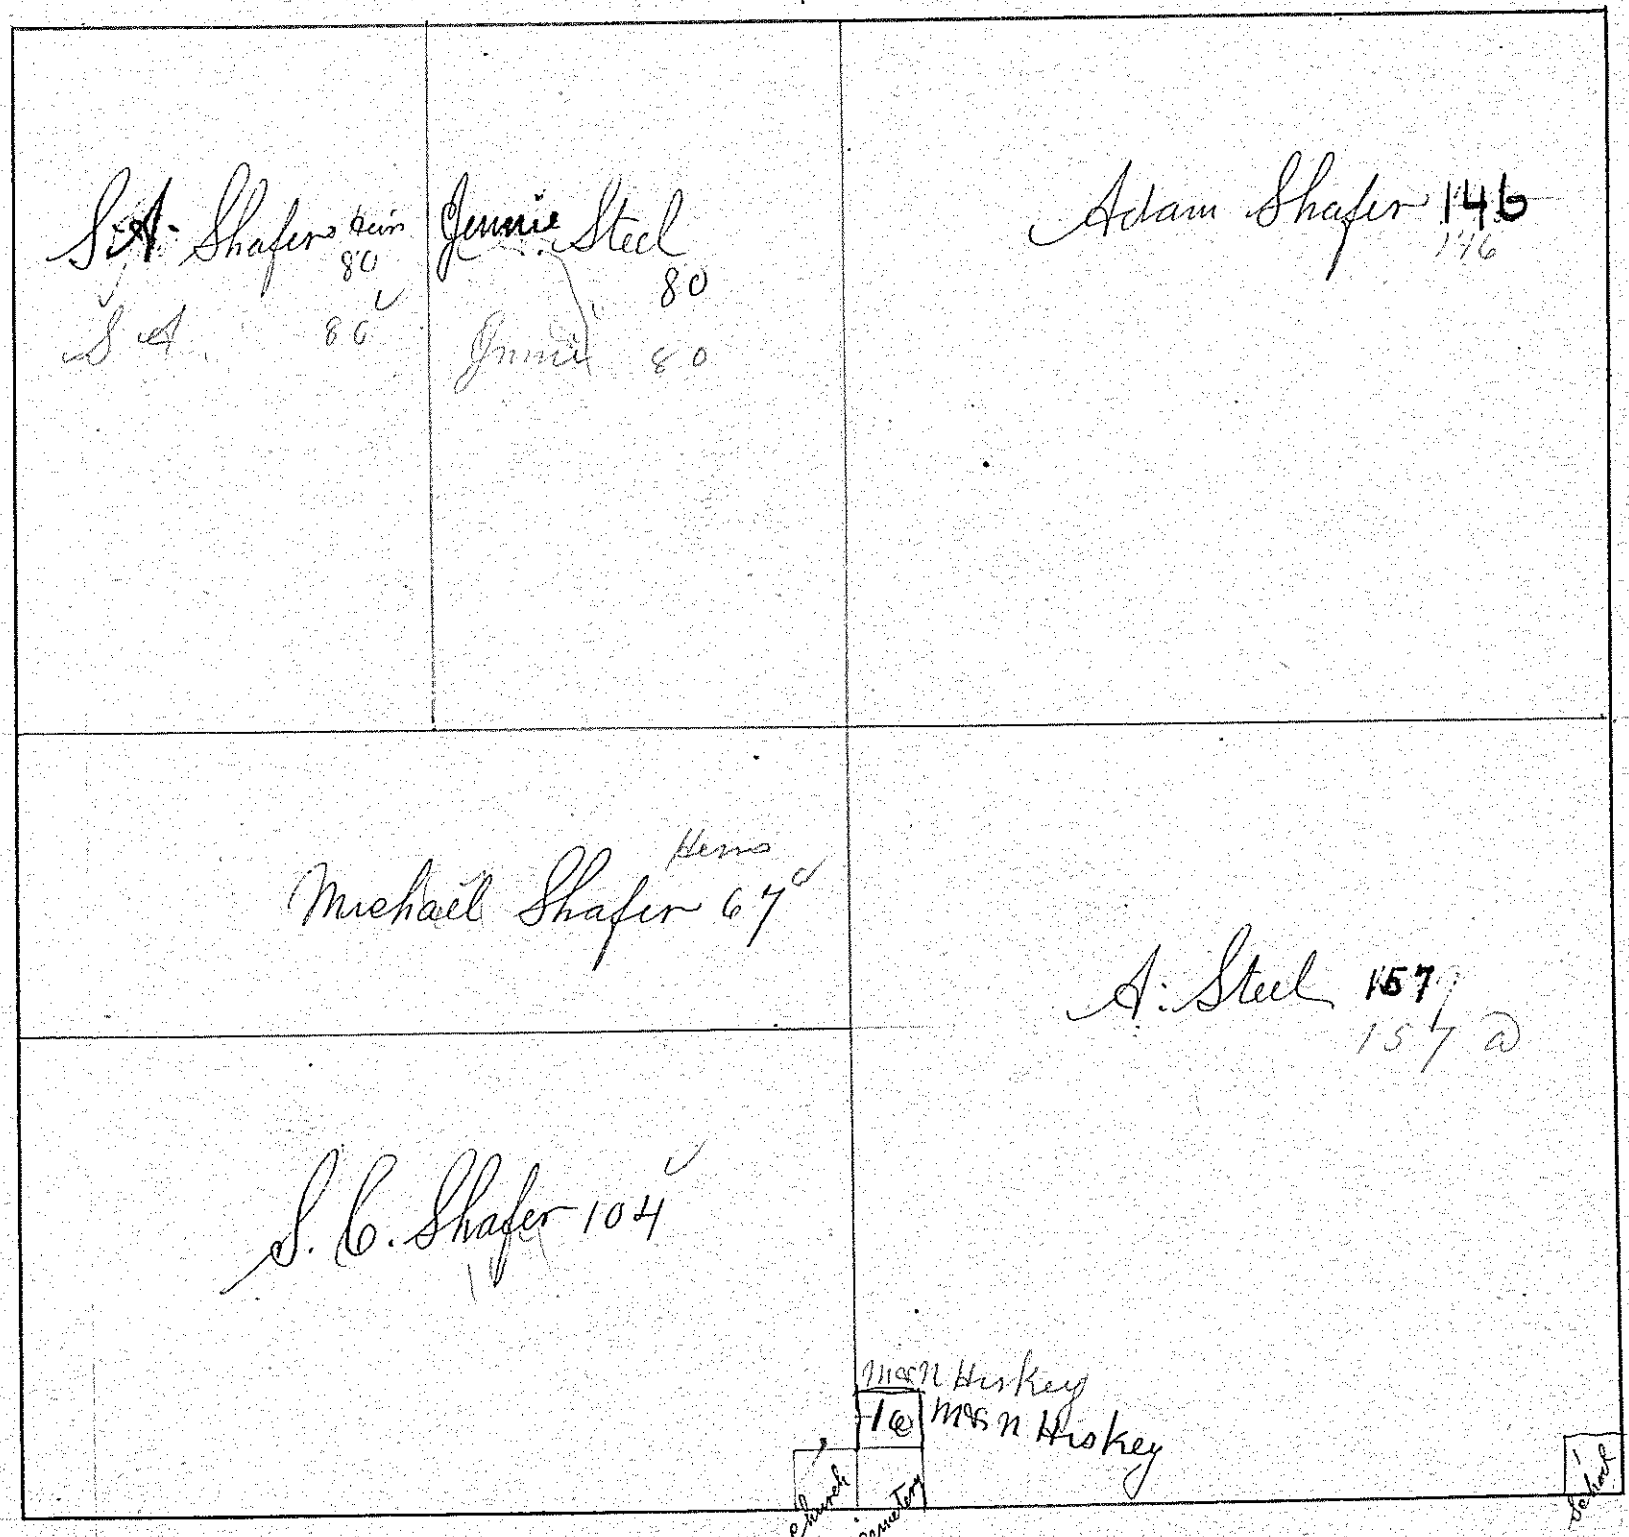 S. A. Shafer heirs
80
S A 80
Jennie Steel
80
Jennie 80
Adam Shafer 146
146
Heirs
Michael Shafer 67
A. Steel 157
157 a
S. C. Shafer 104
Mrs N Hiskey
1 a Mrs N Hiskey
Church
Cemetery
School